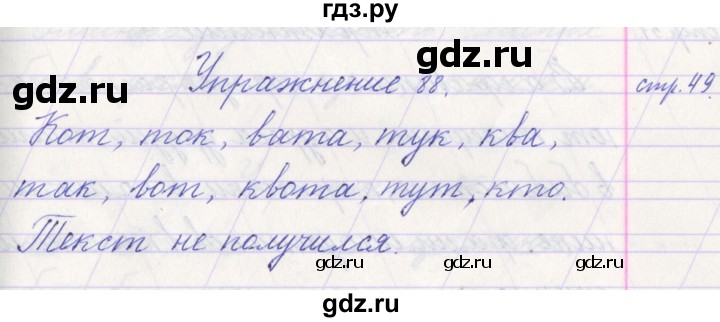 гдз.ру
gdz.ru gdz.ru
Упражнение 88. стр. 49.
Кот, ток, вата, тук, ква,
так, вот, квота, тут, кто.
Текст не получился.
gdz.ru gdz.ru
gdz.ru